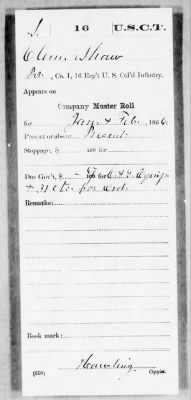 S. 16 U.S.C.T.
Clem Shaw
Pvt., Co. I, 16 Reg't U. S. Col'd Infantry.
Appears on
Company Muster Roll
for Jan & Feb, 1866
Present or absent Present
Stoppage, $ 100 for
Due Gov't, $ 100 for C. & G. Equip
+ 31 cts for ord
Remarks:
Book mark:
(358) Copyist.